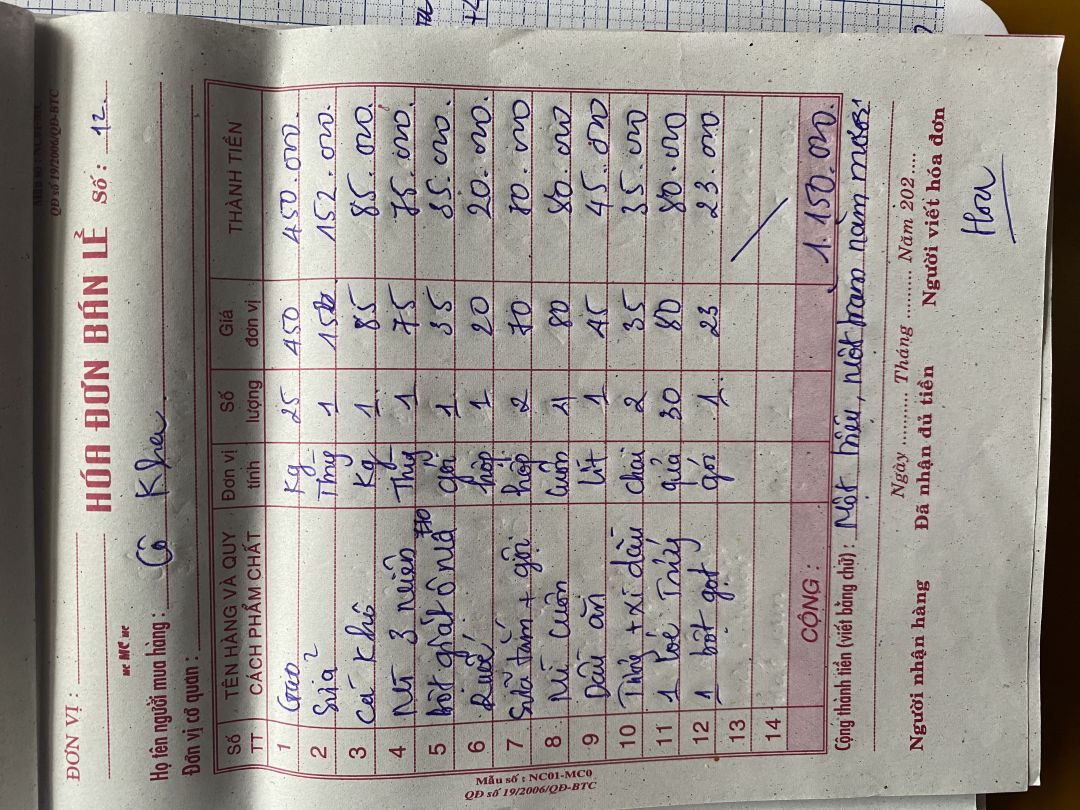 Mẫu số : NC01-MC0
QĐ số 19/2006/QĐ-BTC
ĐƠN VỊ :
HÓA ĐƠN BÁN LẺ Số : 12.
Họ tên người mua hàng : Cô Khu
Đơn vị cơ quan :
Số TT TÊN HÀNG VÀ QUY CÁCH PHẨM CHẤT Đơn vị tính Số lượng Giá đơn vị THÀNH TIỀN
1 Gạo Kg 25 450 450.000.
2 Sữa Thùg 1 152 152.000.
3 Cá Khô Kg 1 85 85.000
4 Mì 3 miền Thùg 1 75 75.000
5 bột giặt ô mô gói 1 35 35.000.
6 hộp 1 20 20.000.
7 Sữa tắm + gội hộp 2 70 70.000
8 Mì cuộn Cuộn 4 80 80.000
9 Dầu ăn Lít 1 45 45.000
10 + xì dầu chai 2 35 35.000
11 1 Trứng quả 30 80 80.000
12 1 bột gọt gói 1 23 23.000
13
14
CỘNG : 1.150.000.
Cộng thành tiền (viết bằng chữ) : Một triệu, một trăm năm mươi
Ngày .......... Tháng .......... Năm 202 ....
Người nhận hàng Đã nhận đủ tiền Người viết hóa đơn
Hoa
Mẫu số : NC01-MC0
QĐ số 19/2006/QĐ-BTC